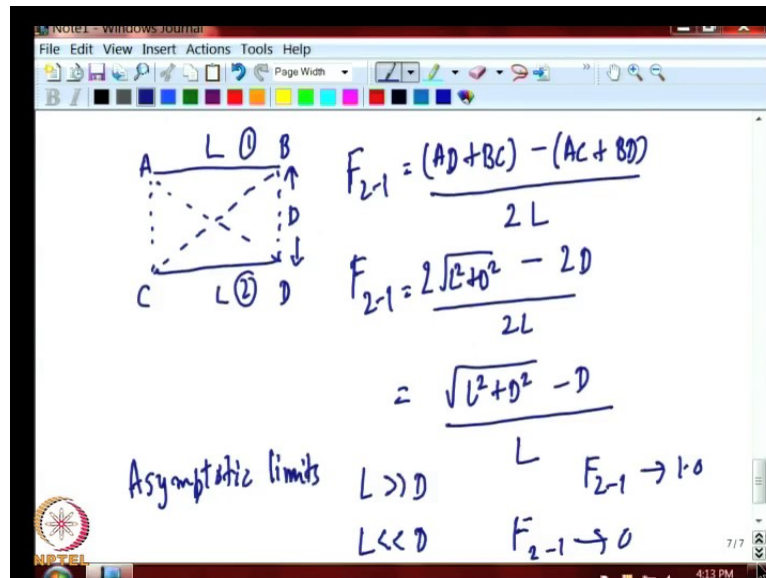 Note1 - Windows Journal
File Edit View Insert Actions Tools Help
Page Width
B I
L ① B
A
D
C L ② D
F2-1 = (AD+BC) - (AC+BD)
2L
F2-1 = 2√L²+D² - 2D
2L
= √L²+D² - D
L
Asymptotic limits L>>D F2-1 → 1.0
L<<D F2-1 → 0
NPTEL
7/7
4:13 PM